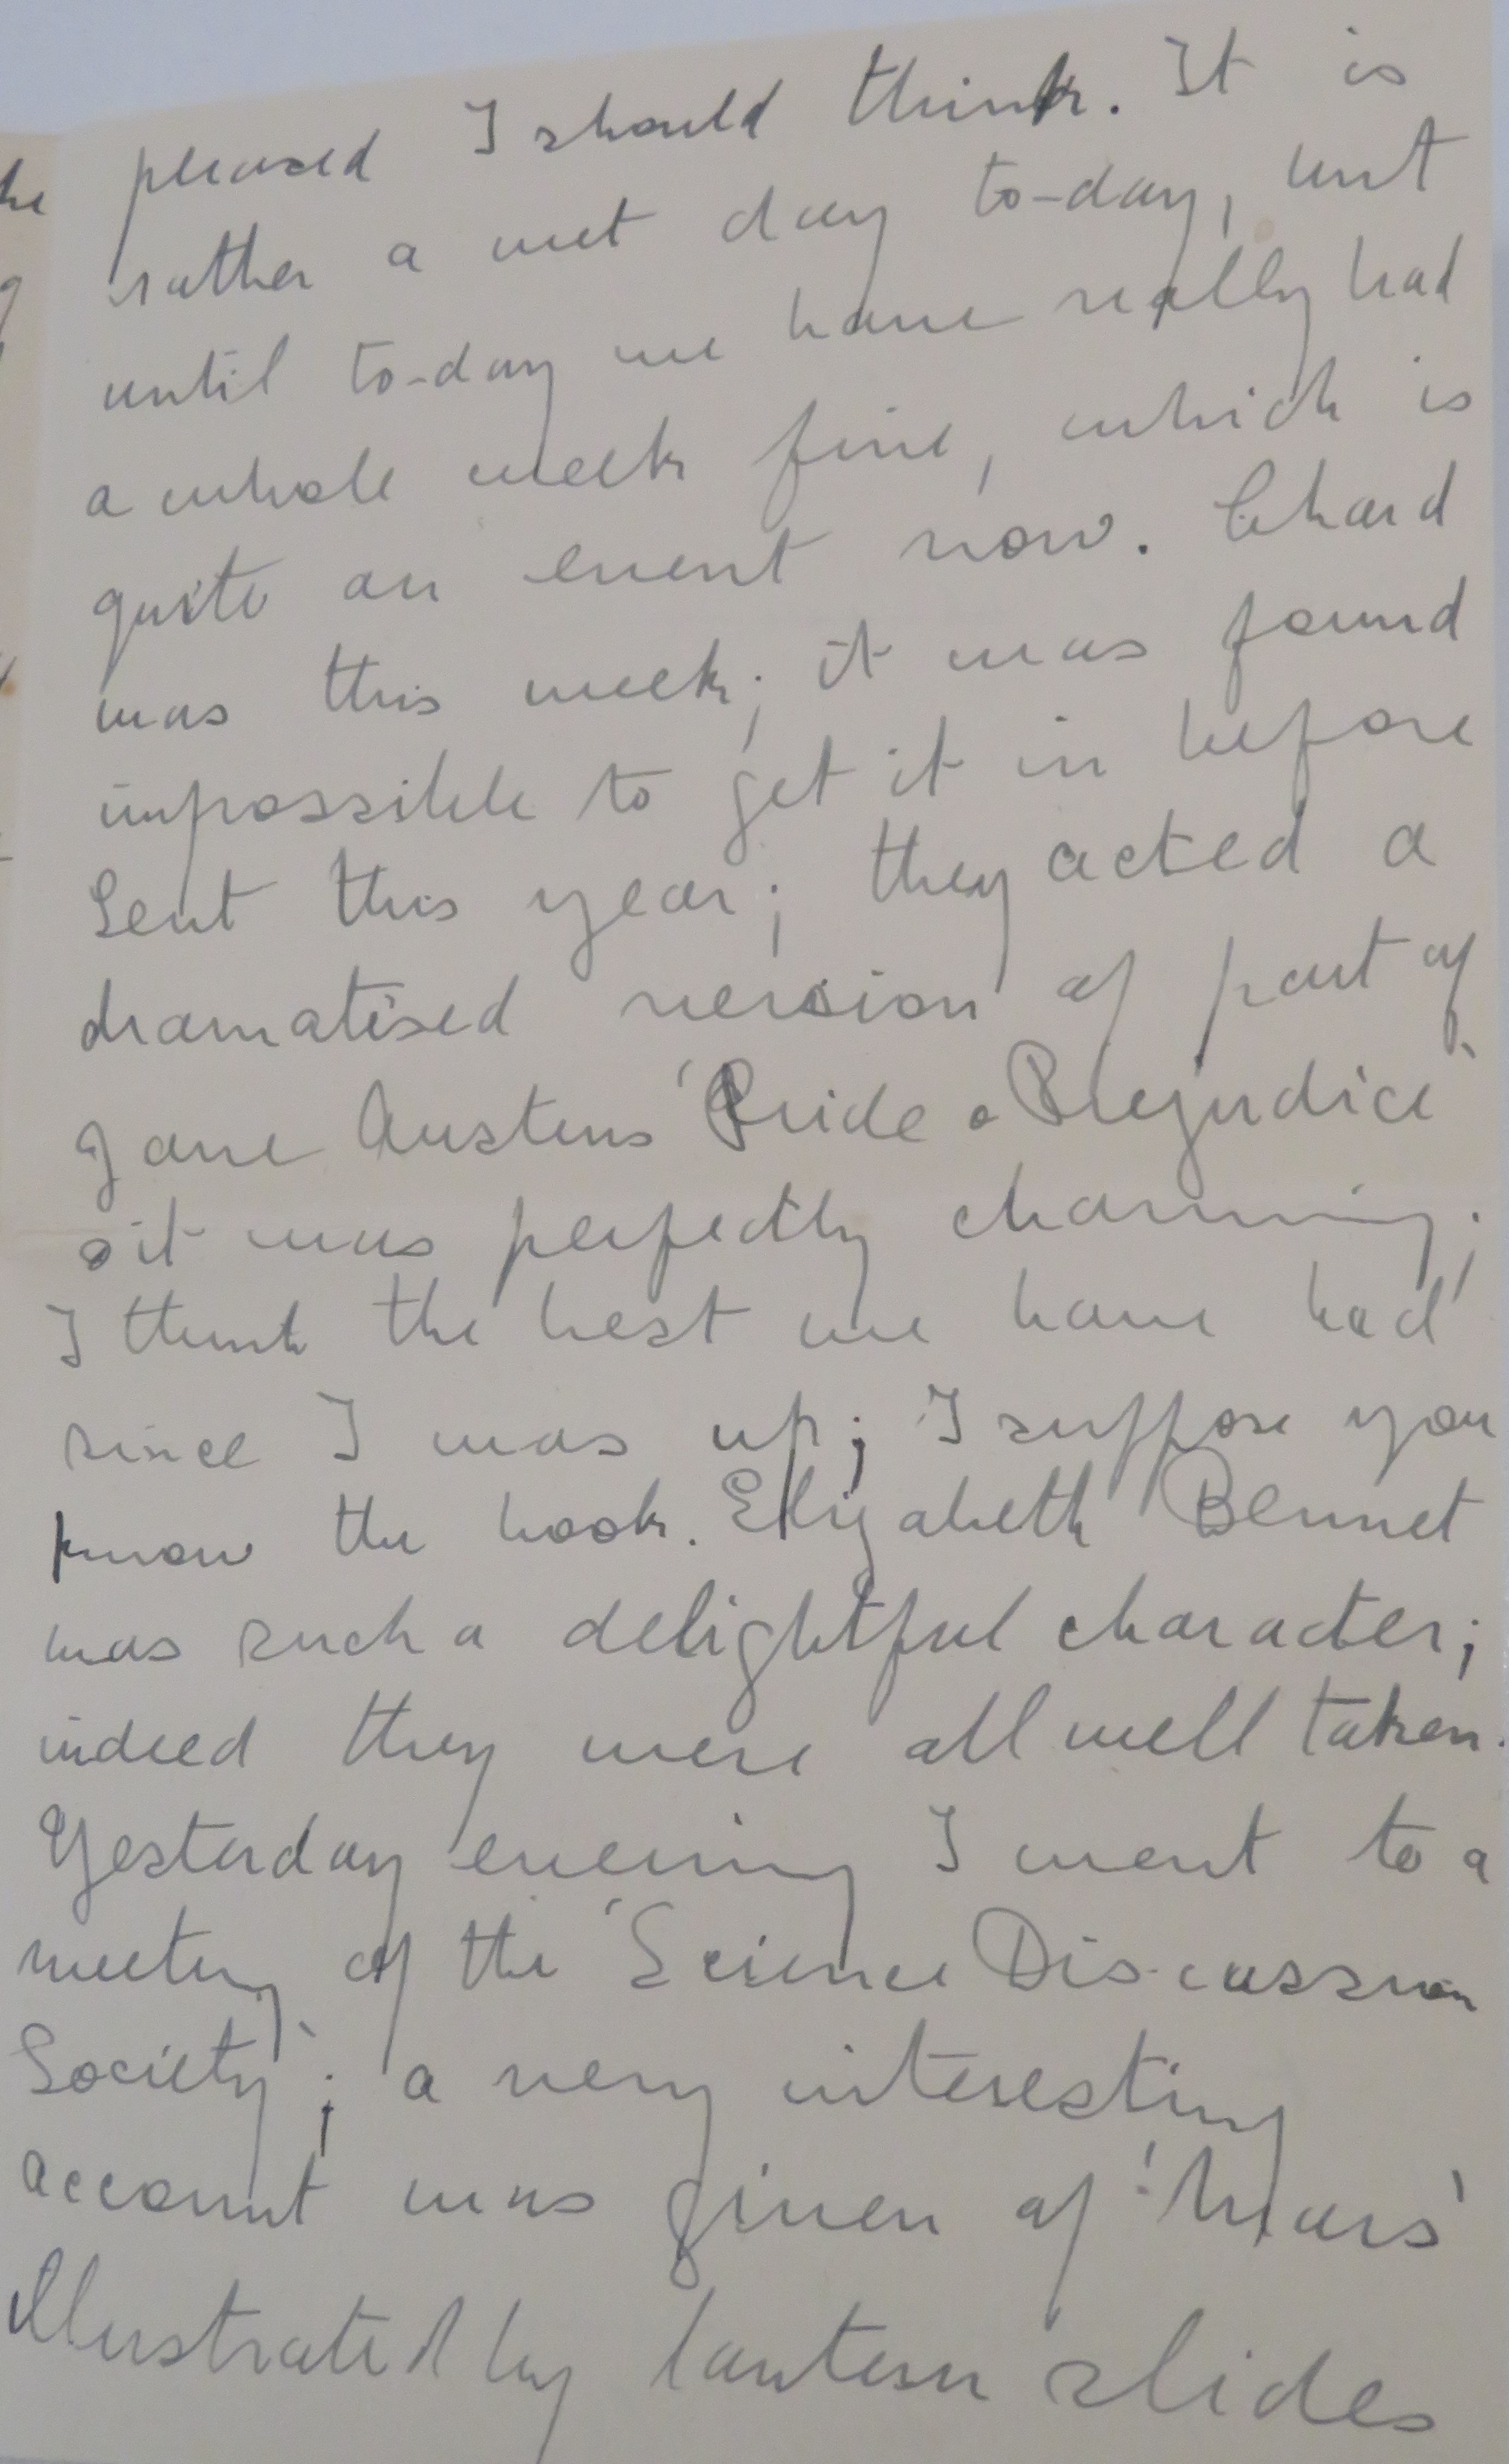 pleased I should think. It is
rather a wet day to-day, but
until to-day we have really had
a whole week fine, which is
quite an event now. Chard
was this week; it was found
impossible to get it in before
Lent this year; they acted a
dramatised version of part of
Jane Austens 'Pride & Prejudice'
& it was perfectly charming;
I think the best we have had
since I was up; I suppose you
know the book. Elizabeth Bennet
was such a delightful character;
indeed they were all well taken.
Yesterday evening I went to a
meeting of the 'Science Discussion
Society'; a very interesting
account was given of 'Mars'
illustrated by lantern slides